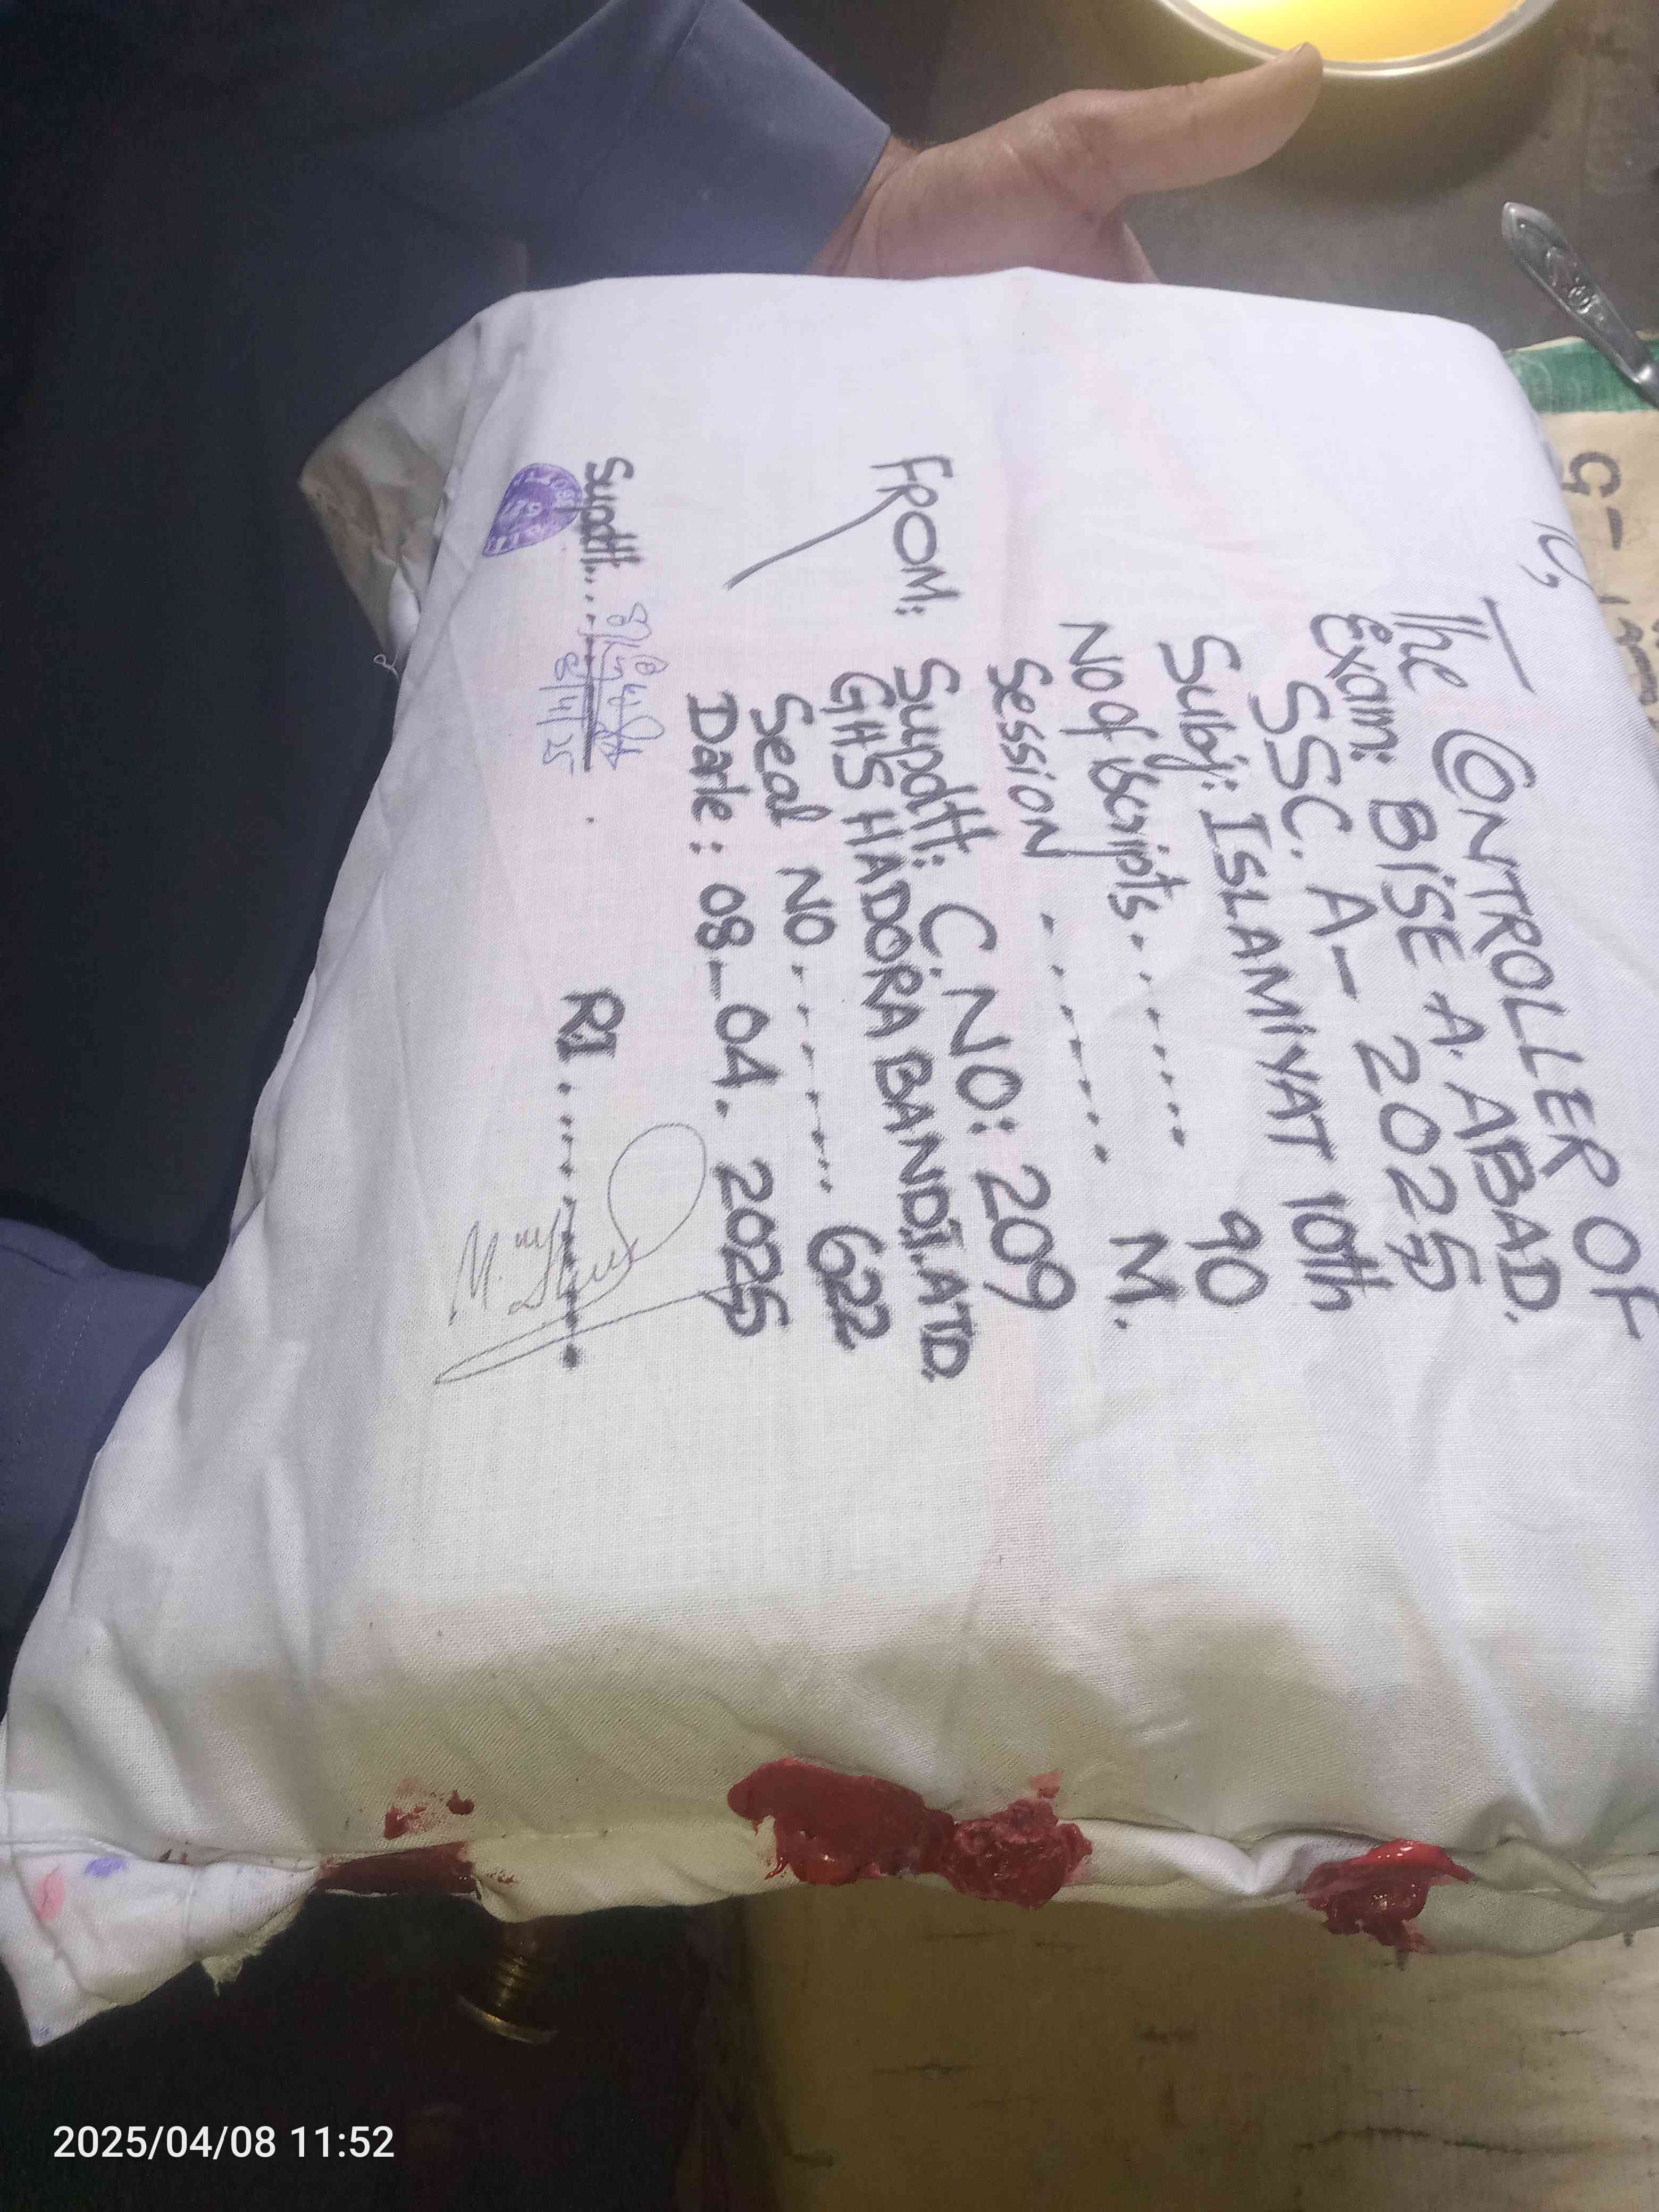 To,
The CONTROLLER OF
Exam: BISE A. ABAD.
SSC. A- 2025
Subj: ISLAMIYAT 10th
No of Scripts......... 90
Session ....... M.
FROM: Supdtt: C.NO: 209
GHS HADORA BANDI. ATD.
Seal NO......... 622
Date: 08-04. 2025
Supdtt.....
8/4/25
RI.........
G-
2025/04/08 11:52